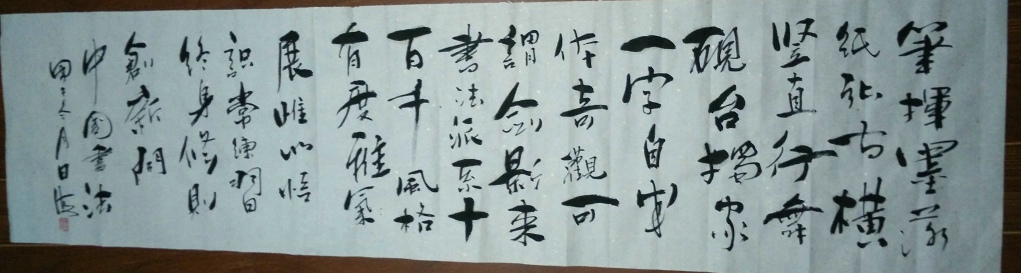 筆揮墨溅
紙弘古橫
竖直行舞
硯台揭家
一字自成
作奇觀可
謂劍影来
書法派系十
百千風格
有度雅氣
展唯心悟
識常練習
終身修則
創新問
中國書法
甲子冬月日